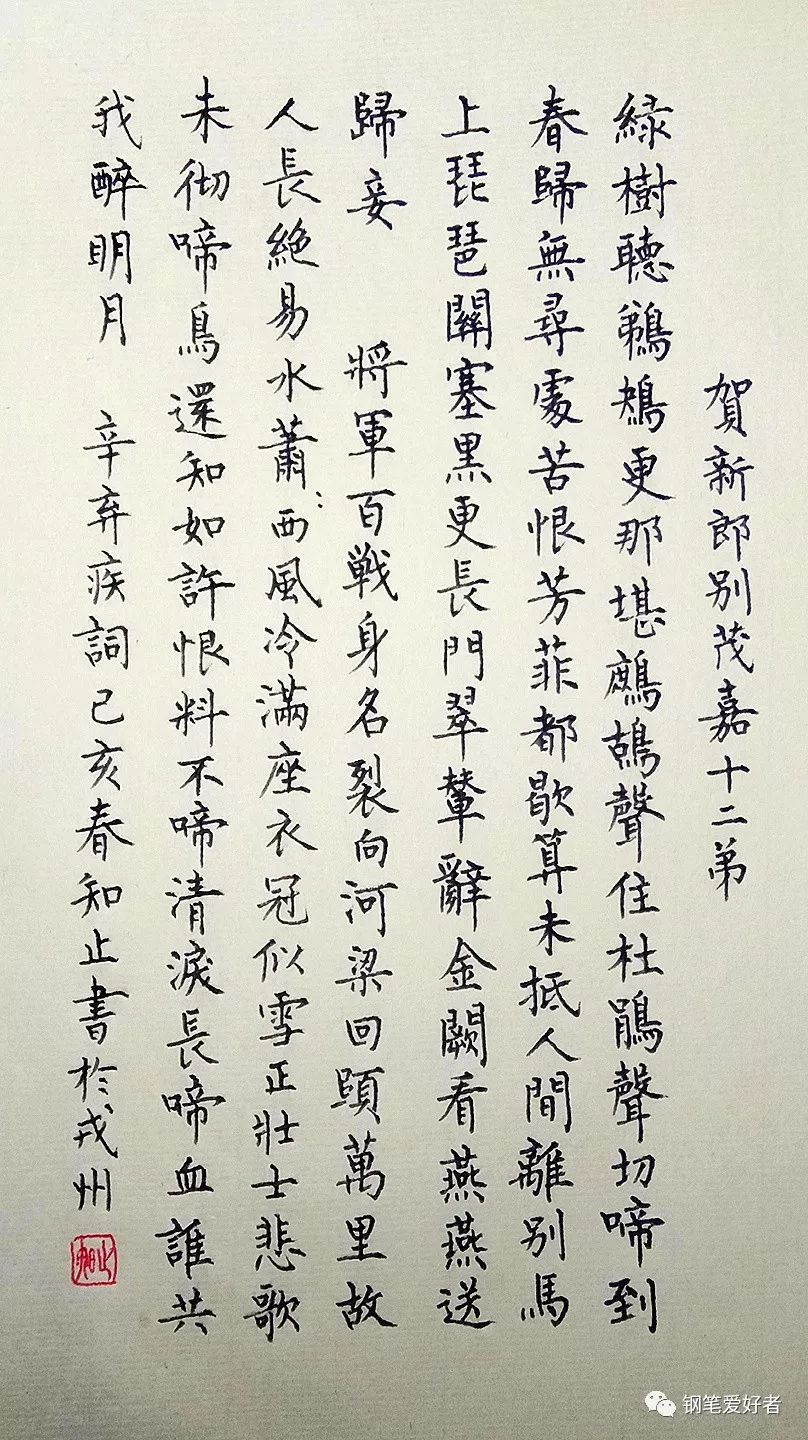 賀新郎別茂嘉十二弟
緑樹聽鵜鴂更那堪鷓鴣聲住杜鵑聲切啼到
春歸無尋處苦恨芳菲都歇算未抵人間離別馬
上琵琶關塞黑更長門翠輦辭金闕看燕燕送
歸妾 將軍百戦身名裂向河梁回頭萬里故
人長絶易水蕭:西風冷滿座衣冠似雪正壯士悲歌
未彻啼鳥還知如許恨料不啼清淚長啼血誰共
我醉明月 辛弃疾詞己亥春知止書於戎州
钢笔爱好者